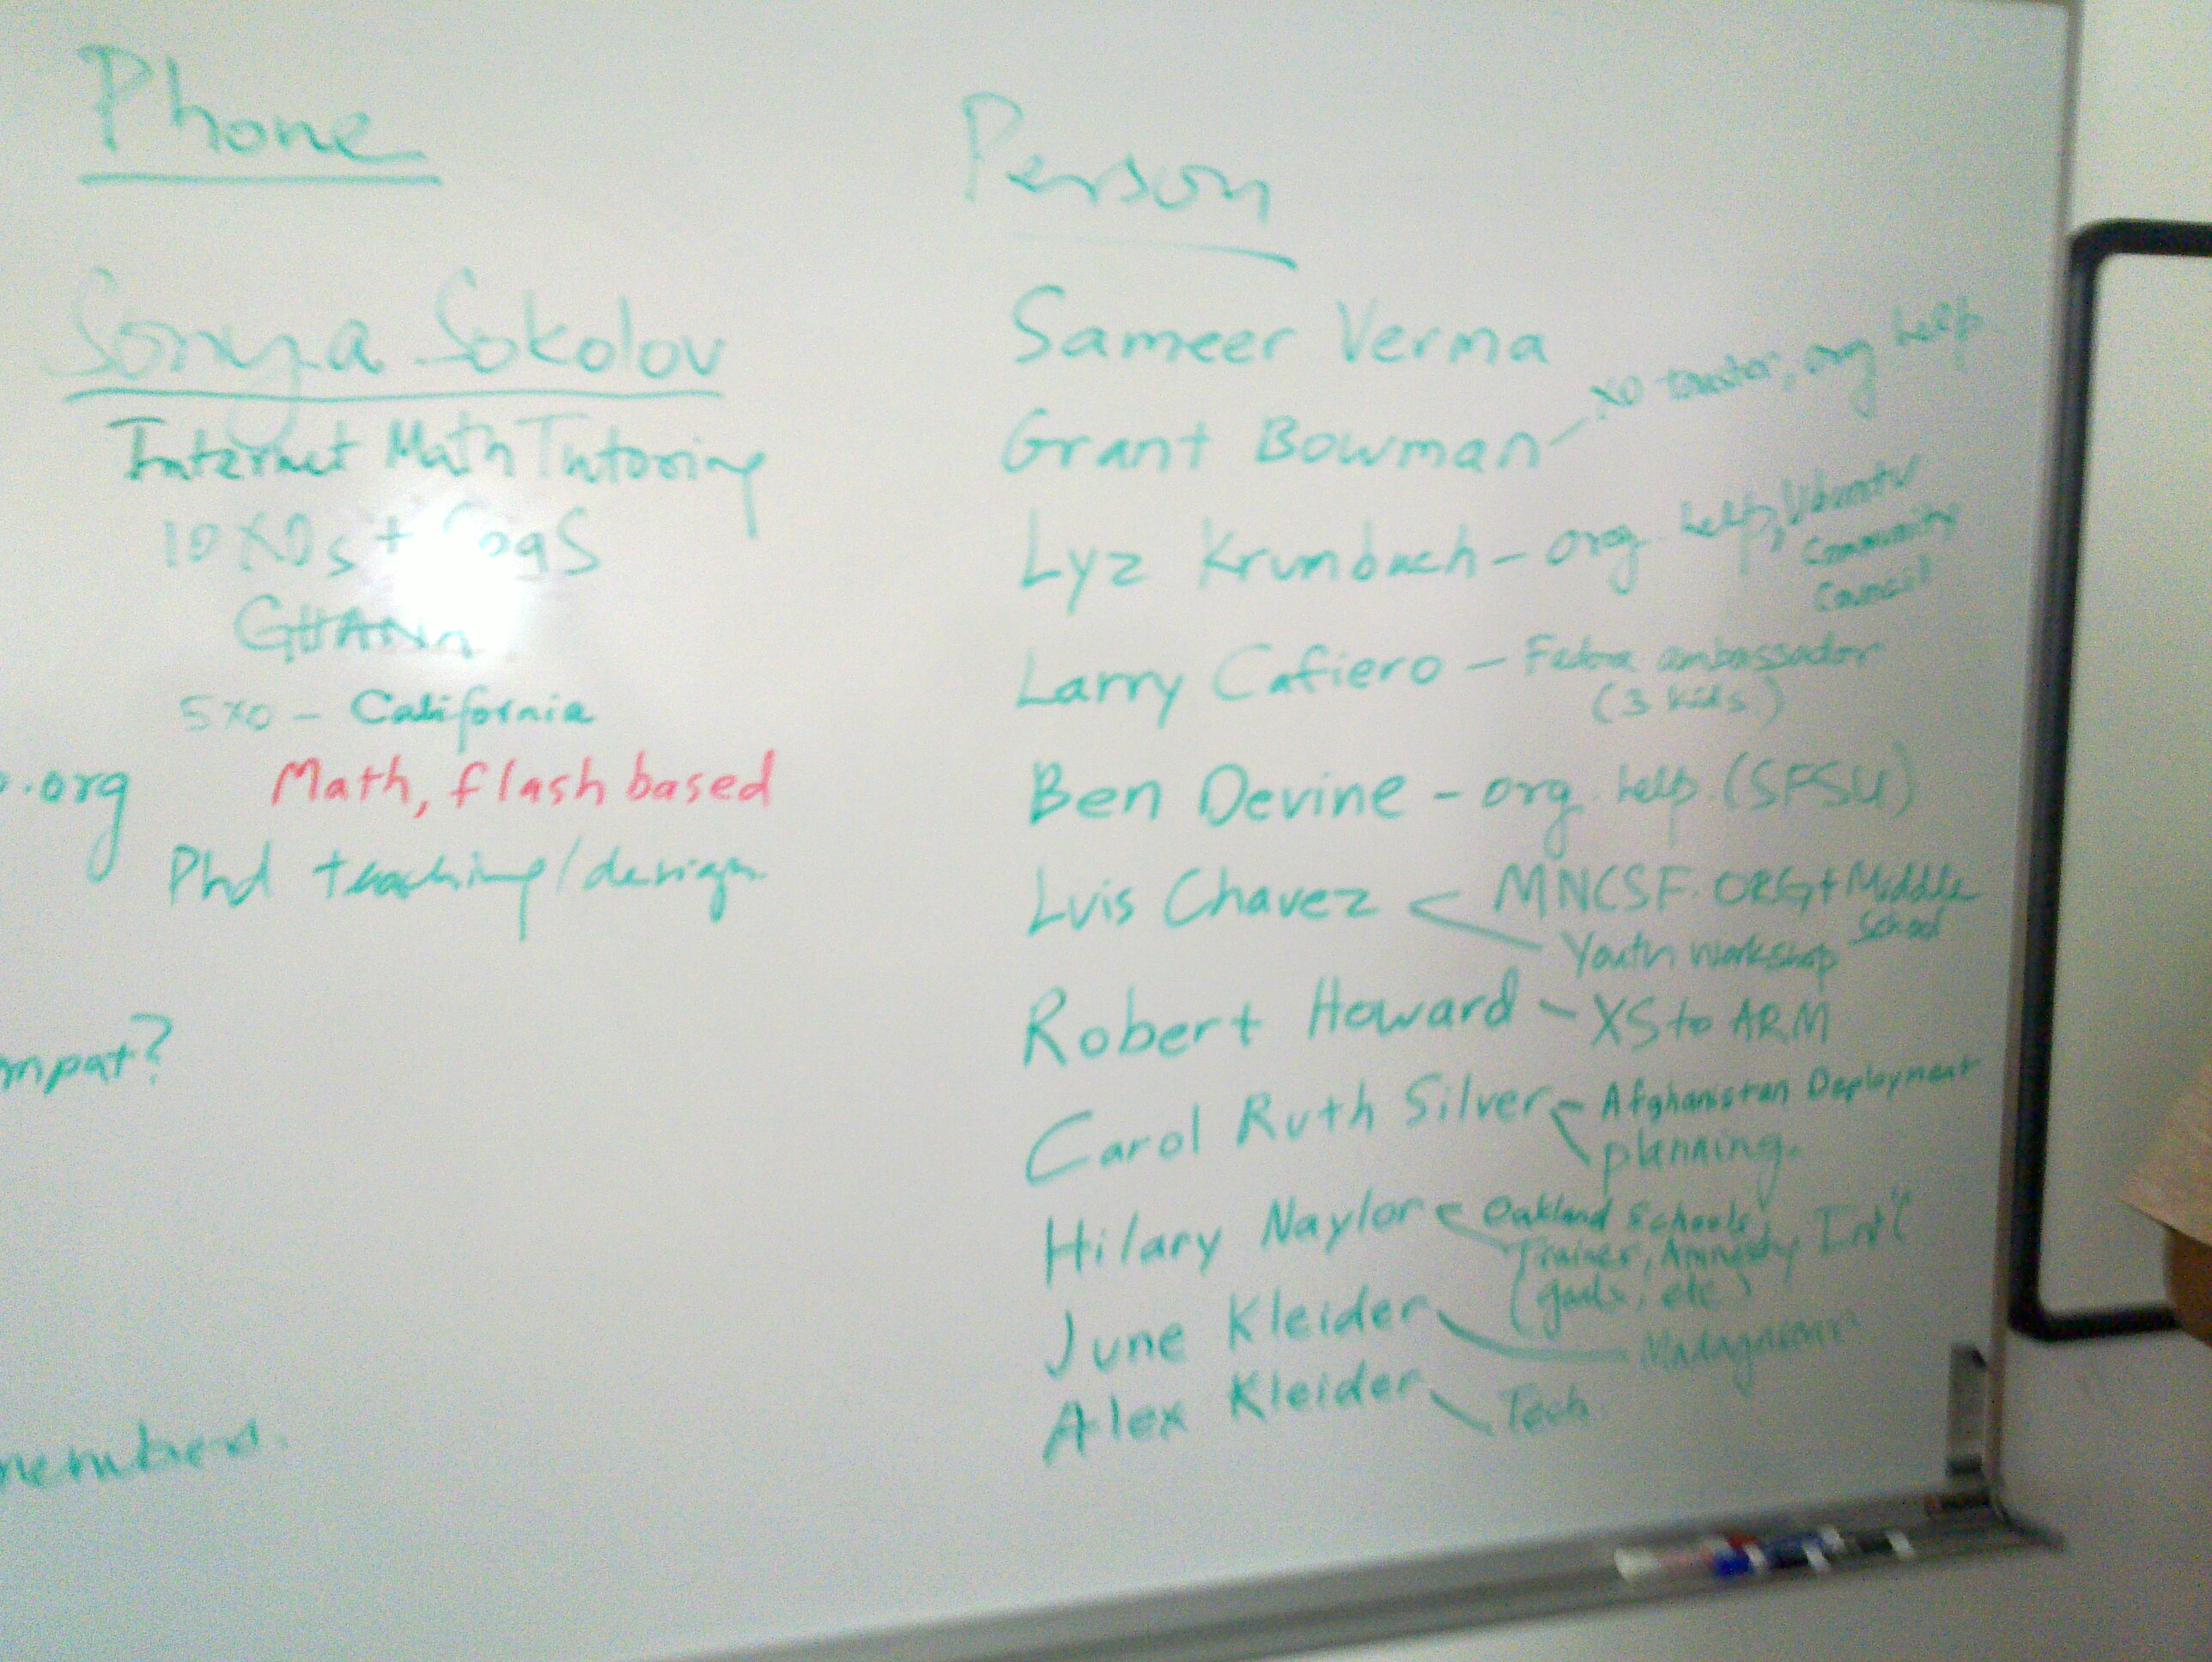 Phone
Sonya Sokolov
Internet Math Tutoring
10 XOs +
GHANA
5 XO - California
Math, flash based
Phd teaching/design
.org
mpat?
Person
Sameer Verma
Grant Bowman - XO toaster, org help
Lyz Krumbach - org. help, Ubuntu
Community
Council
Larry Cafiero - Fedora ambassador
(3 kids)
Ben Devine - org. help. (SFSU)
Luis Chavez < MNCSF.ORG + Middle
School
Youth Workshop
Robert Howard - XS to ARM
Carol Ruth Silver - Afghanistan Deployment
planning.
Hilary Naylor - Oakland Schools,
Trainer, Amnesty Int'l
(goals, etc)
June Kleider - Madagascar
Alex Kleider - Tech